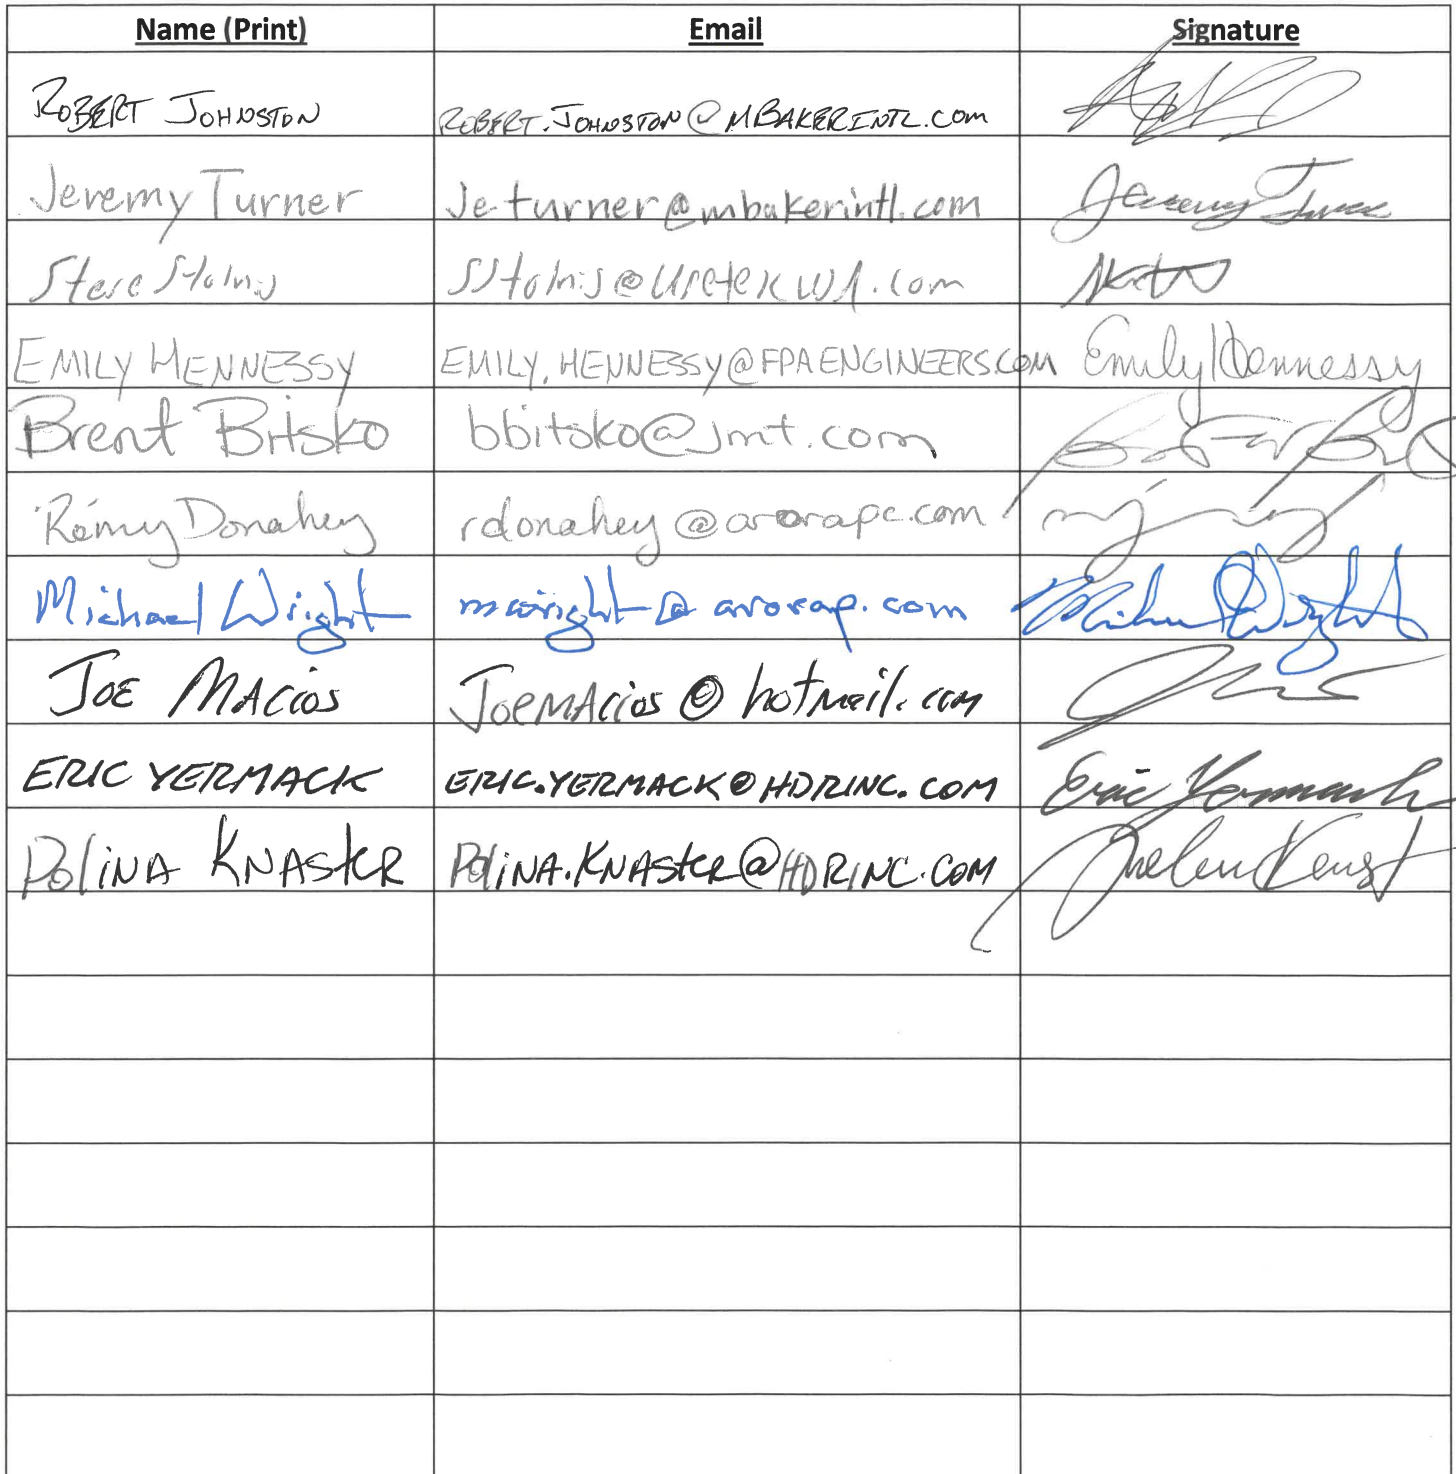 Name (Print) Email Signature
ROBERT JOHNSTON ROBERT.JOHNSTON@MBAKERINTL.COM
Jeremy Turner Je.turner@mbakerintl.com Jeremy Turner
Steve
EMILY HENNESSY EMILY.HENNESSY@FPAENGINEERS.COM Emily Hennessy
Brent Bitsko bbitsko@jmt.com
Rémy Donahey rdonahey@arorapc.com
Michael Wright mwright@arorap.com Michael Wright
JOE MACIOS JOEMACIOS@hotmail.com
ERIC YERMACK ERIC.YERMACK@HDRINC.COM Eric Yermack
POLINA KNASTER POLINA.KNASTER@HDRINC.COM